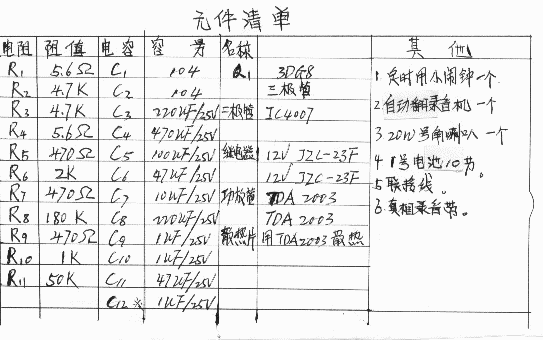 元件清单
电阻 阻值 电容 容量 名称 其他
R1 5.6Ω C1 104 Q1 3DG8
R2 4.7K C2 104 三极管
R3 4.7K C3 220uF/25V 二极管 IC4007
R4 5.6Ω C4 470uF/25V
R5 470Ω C5 100uF/25V 继电器 12V JZC-23F
R6 2K C6 47uF/25V 12V JZC-23F
R7 470Ω C7 10uF/25V 功放管 TDA 2003
R8 180K C8 220uF/25V TDA 2003
R9 470Ω C9 1uF/25V 散热片 用TDA2003散热
R10 1K C10 1uF/25V
R11 50K C11 47uF/25V
C12※ 1uF/25V
1 定时用小闹钟一个
2 自动翻录音机一个
3 20W号角喇叭一个
4 1号电池10节。
5 联接线。
6 真相录音带。